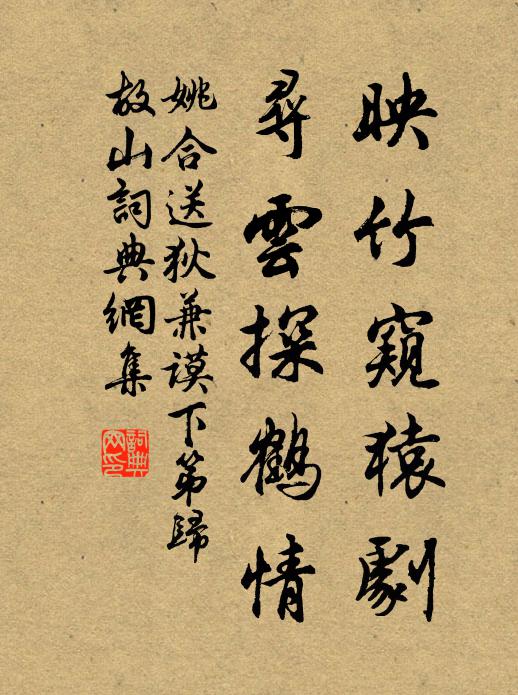 映竹窺猿劇
尋雲探鶴情
姚合送狄兼謨下第歸
故山詞典網集
詞典網印